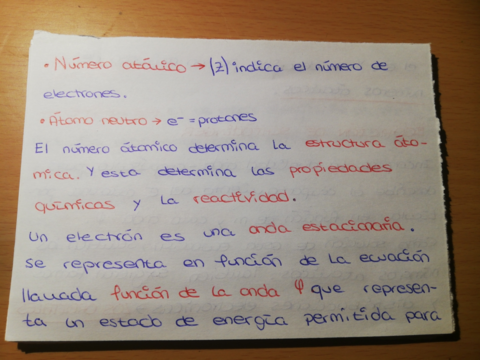 • Número atómico → (Z) indica el número de
electrones.
• Átomo neutro → e⁻ = protones
El número átomico determina la estructura áto-
mica. Y esta determina las propiedades
químicas y la reactividad.
Un electrón es una onda estacionaria.
Se representa en función de la ecuación
llamada función de la onda φ que represen-
ta un estado de energía permitida para